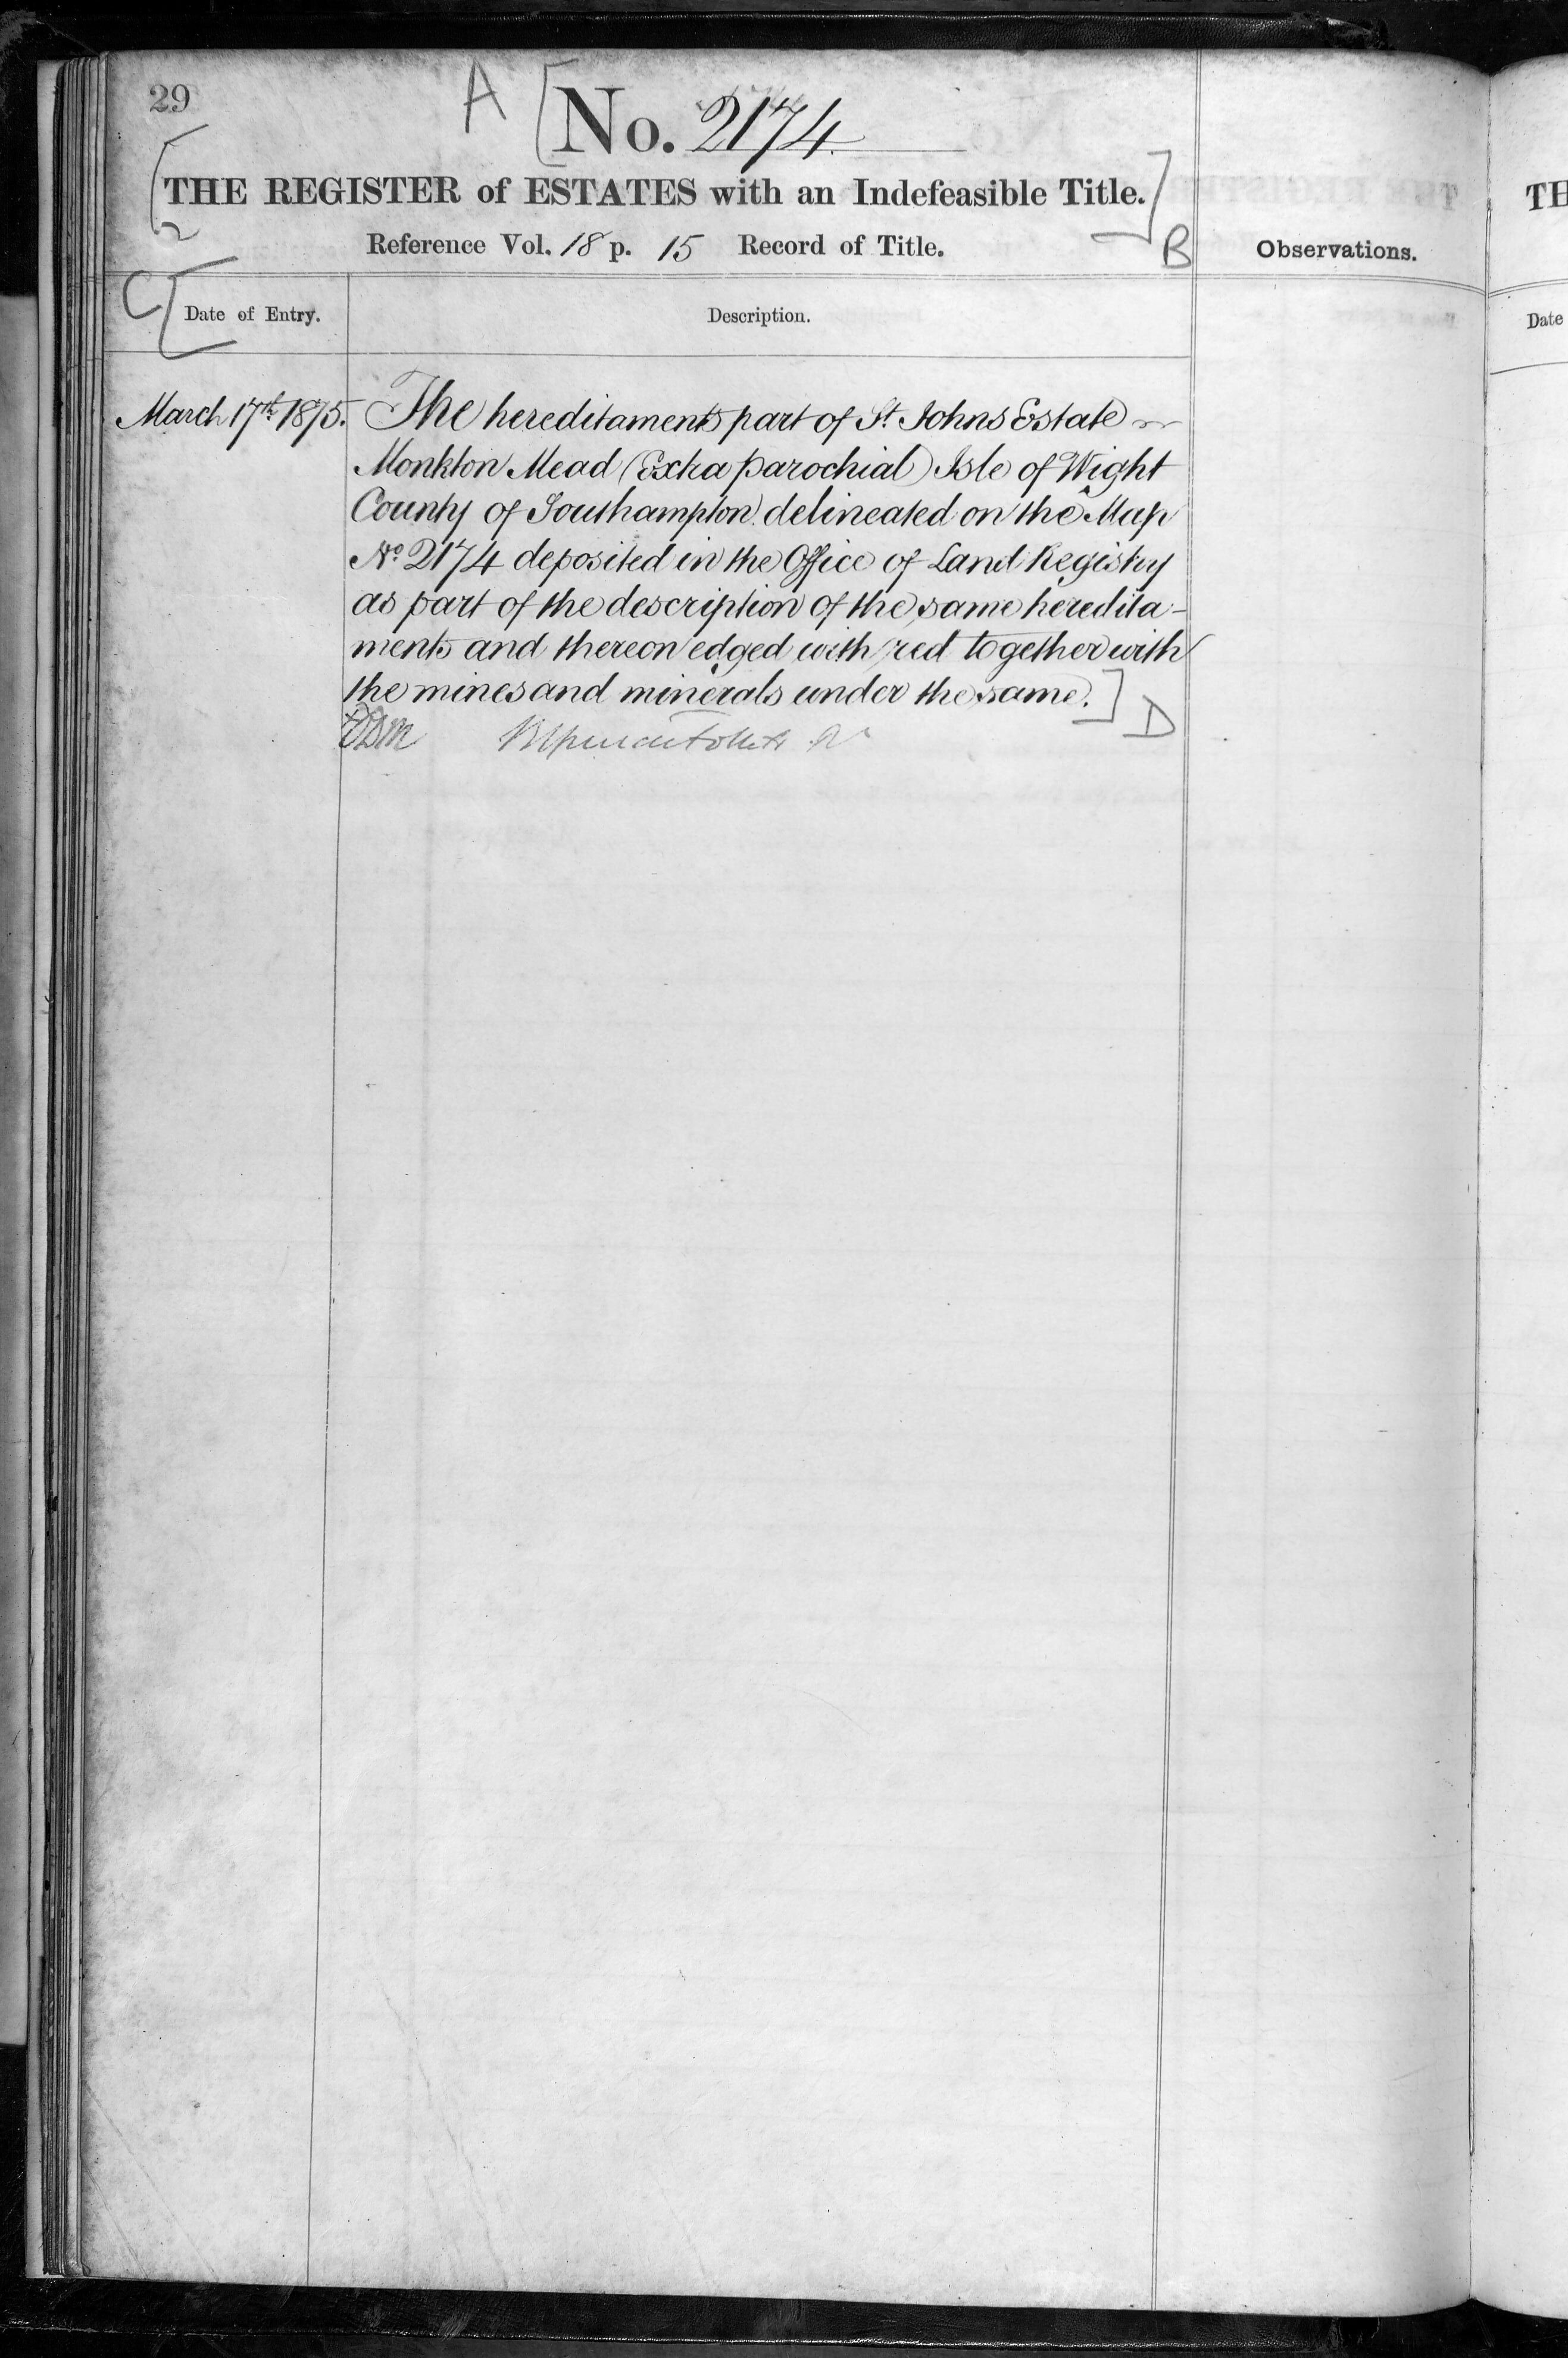 29
A
No. 2174
THE REGISTER of ESTATES with an Indefeasible Title.
Reference Vol. 18 p. 15 Record of Title.
B
Observations.
C
Date of Entry.
Description.
March 17th 1875.
The hereditaments part of St. Johns Estate
Monkton Mead (Extra parochial) Isle of Wight
County of Southampton delineated on the Map
No 2174 deposited in the Office of Land Registry
as part of the description of the same heredita-
ments and thereon edged with red together with
the mines and minerals under the same.
D
TH
Date